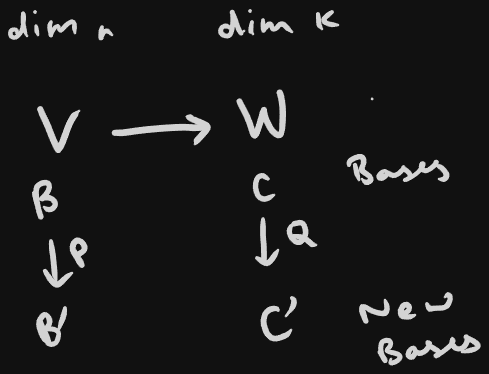 dim n dim K
V → W
B C Bases
↓ P ↓ Q
B' C' New
Bases